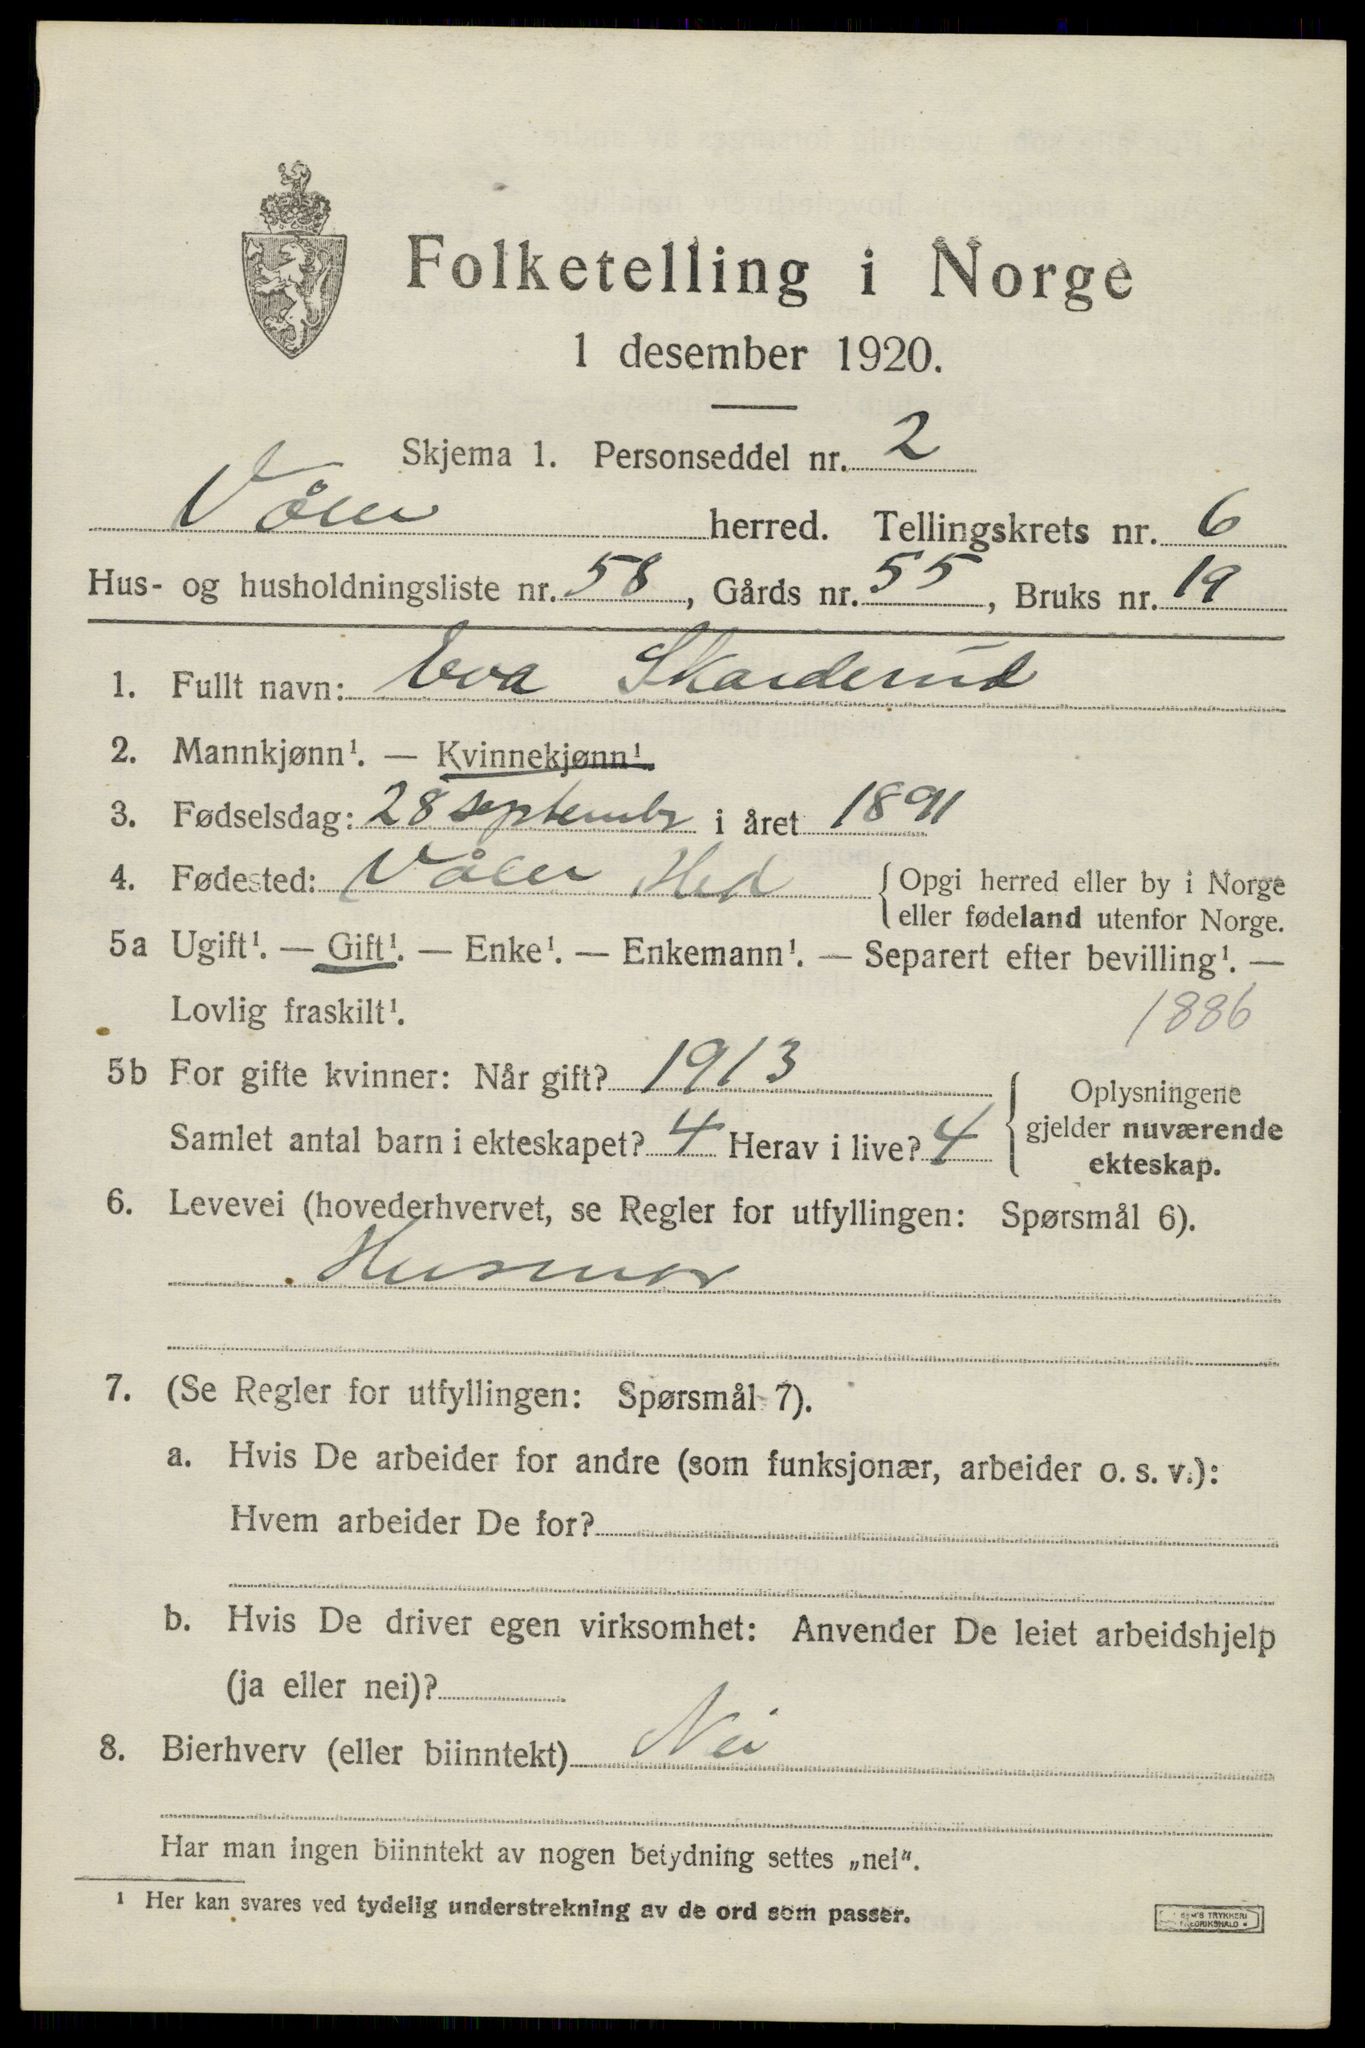 Folketelling i Norge
1 desember 1920.
Skjema 1. Personseddel nr. 2
Våler herred. Tellingskrets nr. 6
Hus- og husholdningsliste nr. 58, Gårds nr. 55, Bruks nr. 19
1. Fullt navn: Eva Skarderud
2. Mannkjønn¹. — Kvinnekjønn¹.
3. Fødselsdag: 28 septembr i året 1891
4. Fødested: Våler Hed { Opgi herred eller by i Norge
eller fødeland utenfor Norge.
5a Ugift¹. — Gift¹. — Enke¹. — Enkemann¹. — Separert efter bevilling¹. —
Lovlig fraskilt¹. 1886
5b For gifte kvinner: Når gift? 1913
Samlet antal barn i ekteskapet? 4 Herav i live? 4
{ Oplysningene
gjelder nuværende
ekteskap.
6. Levevei (hovederhvervet, se Regler for utfyllingen: Spørsmål 6).
Husmor
7. (Se Regler for utfyllingen: Spørsmål 7).
a. Hvis De arbeider for andre (som funksjonær, arbeider o. s. v.):
Hvem arbeider De for?
b. Hvis De driver egen virksomhet: Anvender De leiet arbeidshjelp
(ja eller nei)?
8. Bierhverv (eller biinntekt) Nei
Har man ingen biinntekt av nogen betydning settes „nei“.
¹ Her kan svares ved tydelig understrekning av de ord som passer.
TRYKKERI
FREDRIKSHALD